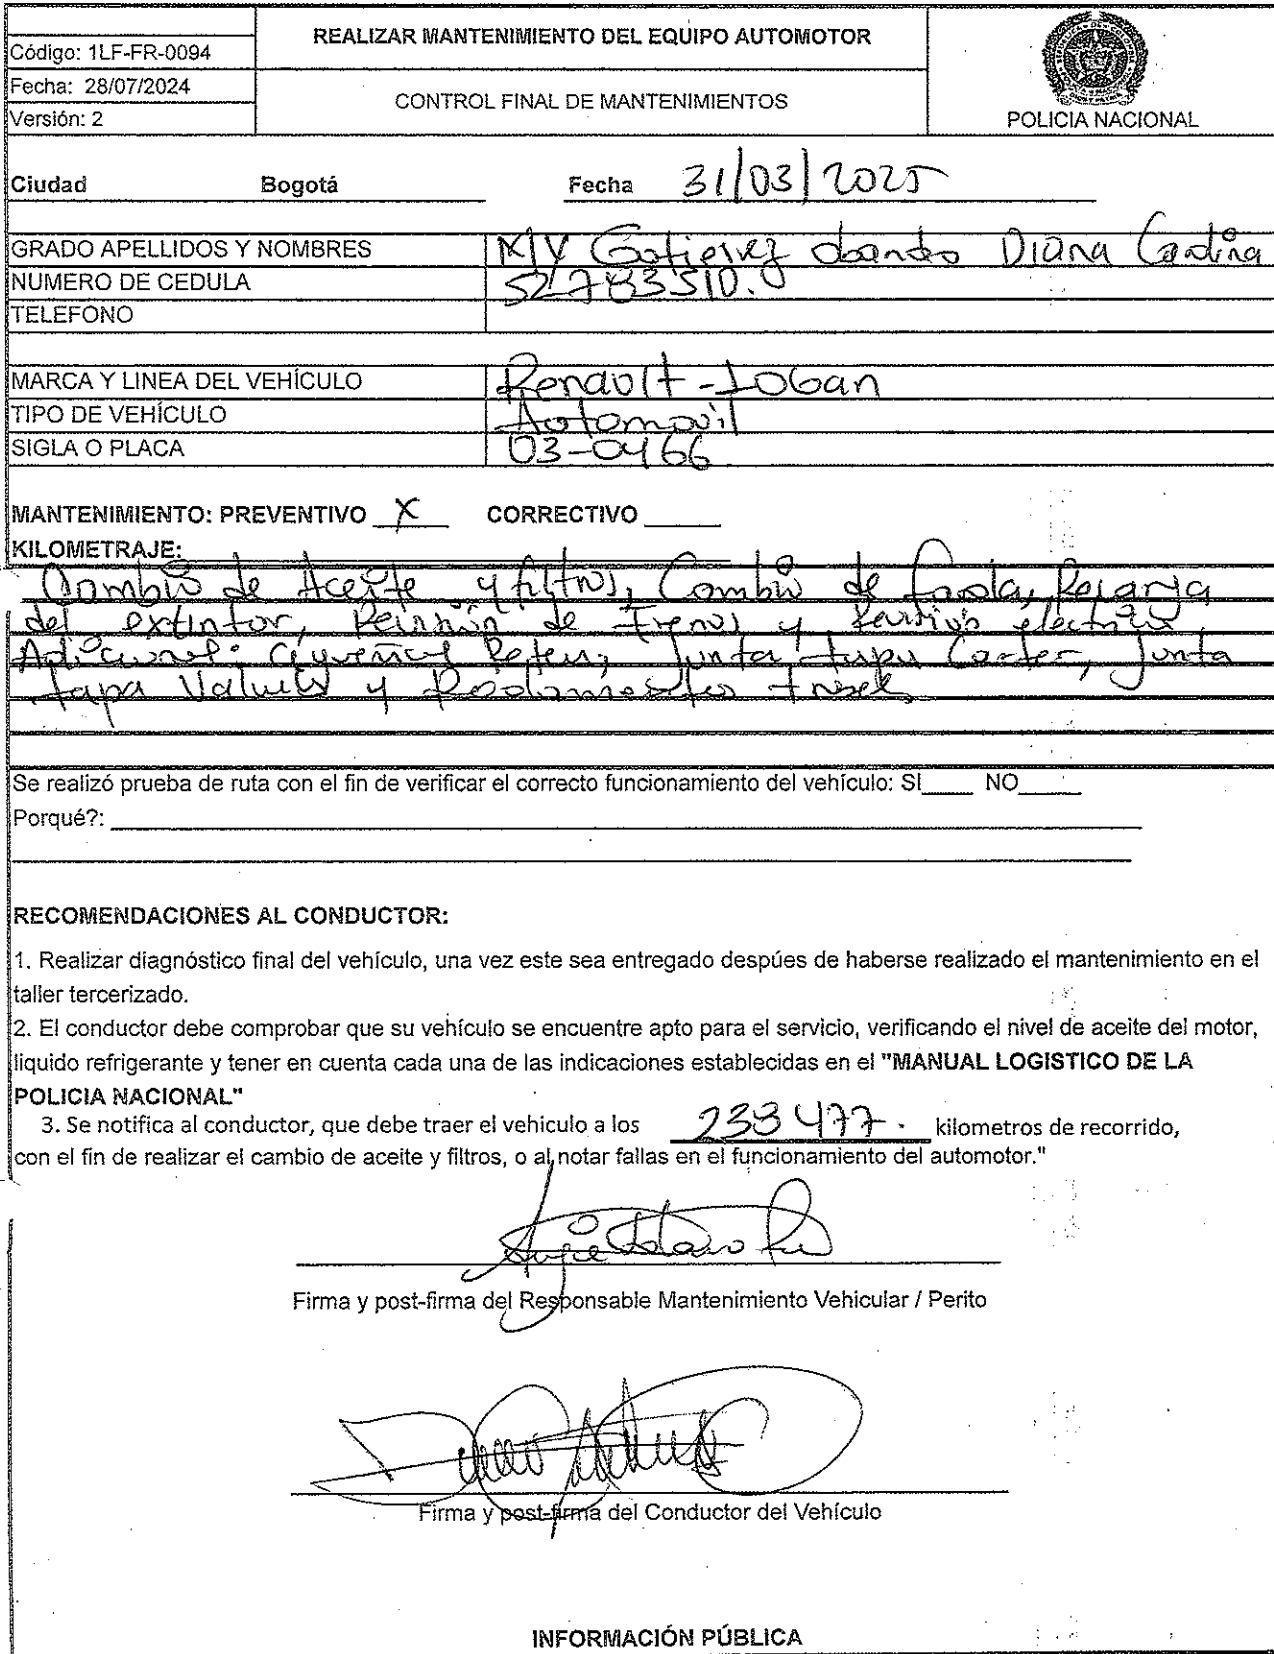 REALIZAR MANTENIMIENTO DEL EQUIPO AUTOMOTOR
Código: 1LF-FR-0094
Fecha: 28/07/2024
CONTROL FINAL DE MANTENIMIENTOS
Versión: 2
POLICIA NACIONAL
Ciudad Bogotá Fecha 31/03/2025
GRADO APELLIDOS Y NOMBRES Diana
NUMERO DE CEDULA 52783510.
TELEFONO
MARCA Y LINEA DEL VEHÍCULO Renault - Logan
TIPO DE VEHÍCULO Automovil
SIGLA O PLACA 03-0466
MANTENIMIENTO: PREVENTIVO X CORRECTIVO
KILOMETRAJE:
Cambio de Aceite y filtros, Cambio de
del extintor, Revisión de Frenos y
Junta tapa Carter, Junta
tapa y
Se realizó prueba de ruta con el fin de verificar el correcto funcionamiento del vehículo: SI____ NO____
Porqué?:
RECOMENDACIONES AL CONDUCTOR:
1. Realizar diagnóstico final del vehículo, una vez este sea entregado despúes de haberse realizado el mantenimiento en el
taller tercerizado.
2. El conductor debe comprobar que su vehículo se encuentre apto para el servicio, verificando el nivel de aceite del motor,
liquido refrigerante y tener en cuenta cada una de las indicaciones establecidas en el "MANUAL LOGISTICO DE LA
POLICIA NACIONAL"
3. Se notifica al conductor, que debe traer el vehiculo a los 233 477. kilometros de recorrido,
con el fin de realizar el cambio de aceite y filtros, o al notar fallas en el funcionamiento del automotor."
Firma y post-firma del Responsable Mantenimiento Vehicular / Perito
Firma y post-firma del Conductor del Vehículo
INFORMACIÓN PÚBLICA